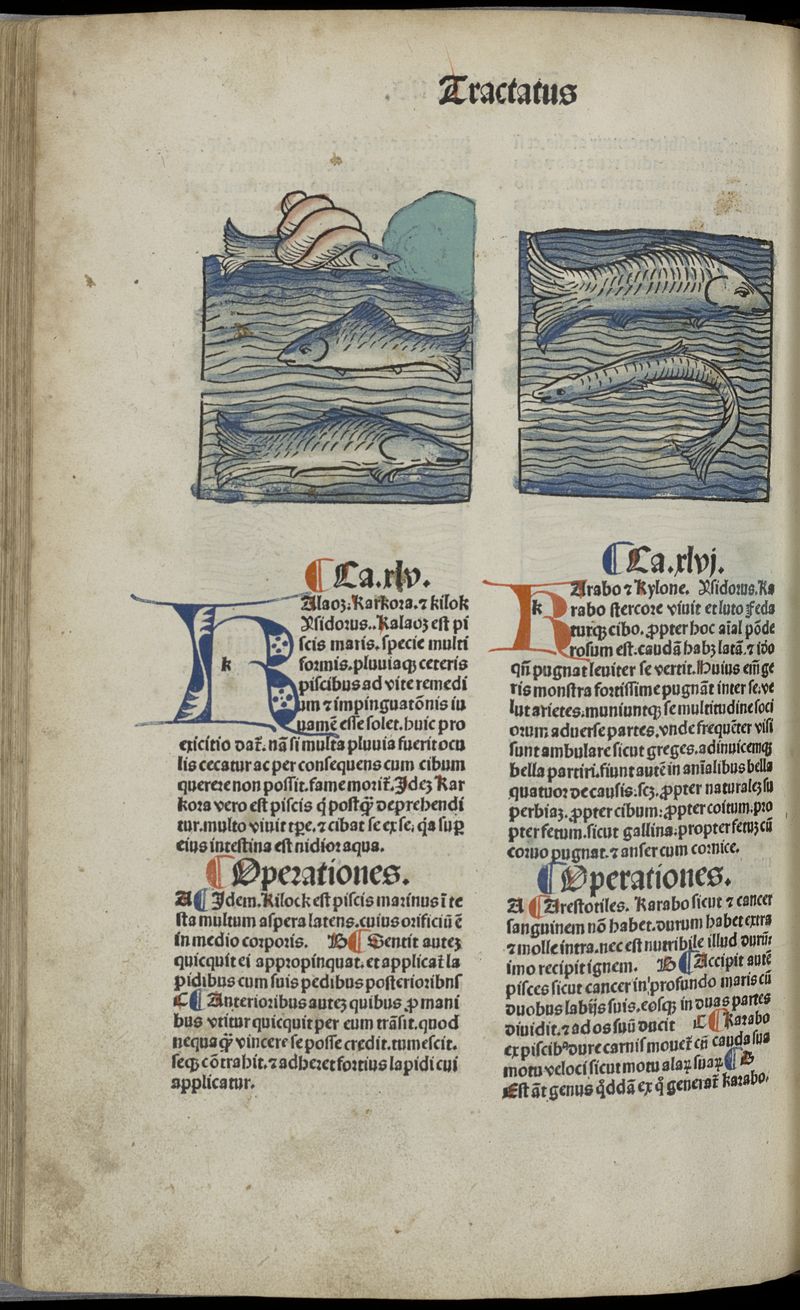 Tractatus
¶ Ca.xlv.
k
Alaoz. Karkora. ⁊ kilok
Ysidorus.. Kalaoz est pi
scis maris. specie multi
formis. pluuiaqꝫ ceteris
piscibus ad vite remedi
um ⁊ impinguatōnis iu
uamē esse solet. huic pro
exicitio dat̄. nā si multa pluuia fuerit ocu
lis cecatur ac per consequens cum cibum
querere non possit. fame morit̄. Idez Kar
kora vero est piscis q̇ postq̄ꝫ deprehendi
tur. multo viuit tp̄e. ⁊ cibat se ex se. q̇a sup̄
eius intestina est nidior aqua.
¶ Operationes.
A ¶ Idem. Kilock est piscis marinus ī te
sta multum aspera latens. cuius orificiū ē
in medio corporis. B ¶ Sentit autez
quicquit ei appropinquat. et applicat̄ la
pidibus cum suis pedibus posterioribus
C ¶ Anterioribus autez quibus ꝓ mani
bus vtitur quicquit per eum trāsit. quod
nequaq̄ꝫ vincere se posse credit. tumescit.
seqꝫ cōtrahit. ⁊ adheret fortius lapidi cui
applicatur.
¶ Ca.xlvj.
k
Arabo ⁊ Kylone. Ysidorus. Ka
rabo stercore viuit et luto feda
turqꝫ cibo. ꝓpter hoc aīal pōde
rosum est. caudā habꝫ latā. ⁊ ido
qn̄ pugnat leuiter se vertit. Huius em̄ ge
ris monstra fortissime pugnāt inter se. ve
lut arietes. muniuntqꝫ se multitudine soci
orum aduerse partes. vnde frequēter visi
sunt ambulare sicut greges. adinuicemqꝫ
bella partiri. fiunt autē in aīalibus bella
quatuor de causis. scꝫ. ꝓpter naturalez su
perbiaz. ꝓpter cibum. ꝓpter coitum. pro
pter fetum. sicut gallina. propter fetuz cū
coruo pugnat. ⁊ anser cum cornice.
¶ Operationes.
A ¶ Arestotiles. Karabo sicut ⁊ cancer
sanguinem nō habet. durum habet extra
⁊ molle intra. nec est nutribile illud durū.
imo recipit ignem. B ¶ Accipit autē
pisces sicut cancer in profundo maris cū
duobus labijs suis. eosqꝫ in duas partes
diuidit. ⁊ ad os suū ducit C ¶ Karabo
ex piscibꝰ dure carnis mouet̄ cū cauda sua
motu veloci sicut motu alaꝝ suaꝝ ¶ B
Est āt genus q̇ddā ex q̇ generat̄ karabo.